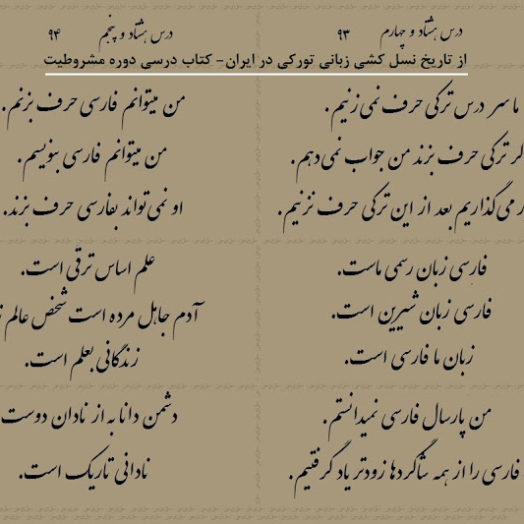 درس هشتاد و چهارم ۹۳
درس هشتاد و پنجم ۹۴
از تاریخ نسل کشی زبانی تورکی در ایران- کتاب درسی دوره مشروطیت
ما سر درس ترکی حرف نمی‌زنیم.
ترکی حرف بزند من جواب نمی‌دهم.
می‌گذاریم بعد از این ترکی حرف نزنیم.
فارسی زبان رسمی ماست.
فارسی زبان شیرین است.
زبان ما فارسی است.
من پارسال فارسی نمیدانستم.
فارسی را از همه شاگردها زودتر یاد گرفتیم.
من میتوانم فارسی حرف بزنم.
من میتوانم فارسی بنویسم.
او نمی‌تواند بفارسی حرف بزند.
علم اساس ترقی است.
آدم جاهل مرده است شخص عالم
زندگانی بعلم است.
دشمن دانا به از نادان دوست
نادانی تاریک است.